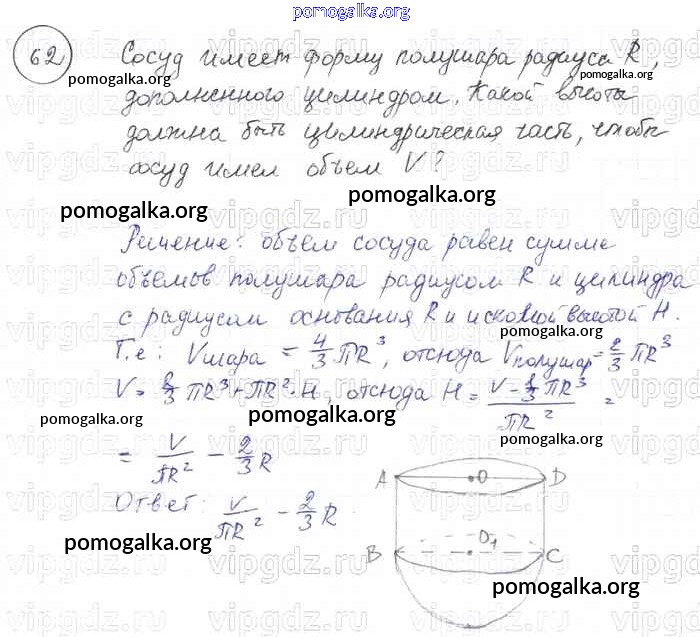 pomogalka.org
62 Сосуд имеет форму полушара радиуса R,
pomogalka.org pomogalka.org
дополненного цилиндром. Какой высоты
должна быть цилиндрическая часть, чтобы
сосуд имел объем V?
pomogalka.org
pomogalka.org
Решение: объем сосуда равен сумме
объемов полушара радиусом R и цилиндра
с радиусом основания R и искомой высотой H.
pomogalka.org
Т.е: Vшара = 4/3 πR³, отсюда Vполушар = 2/3 πR³
pomogalka.org
V = 2/3 πR³ + πR² · H, отсюда H = (V - 2/3 πR³)/πR² =
pomogalka.org pomogalka.org
pomogalka.org
= V/πR² - 2/3 R
Ответ: V/πR² - 2/3 R
A O D
pomogalka.org
B O₁ C
pomogalka.org